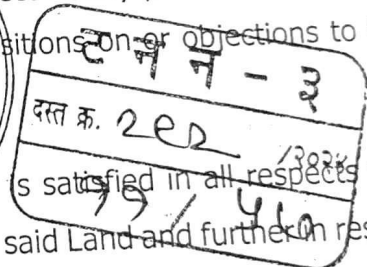 sitions on or objections to
ट न न - ३
दस्त क्र. २९२ /२०२४
is satisfied in all respects
११ / ५७
said Land and further in res